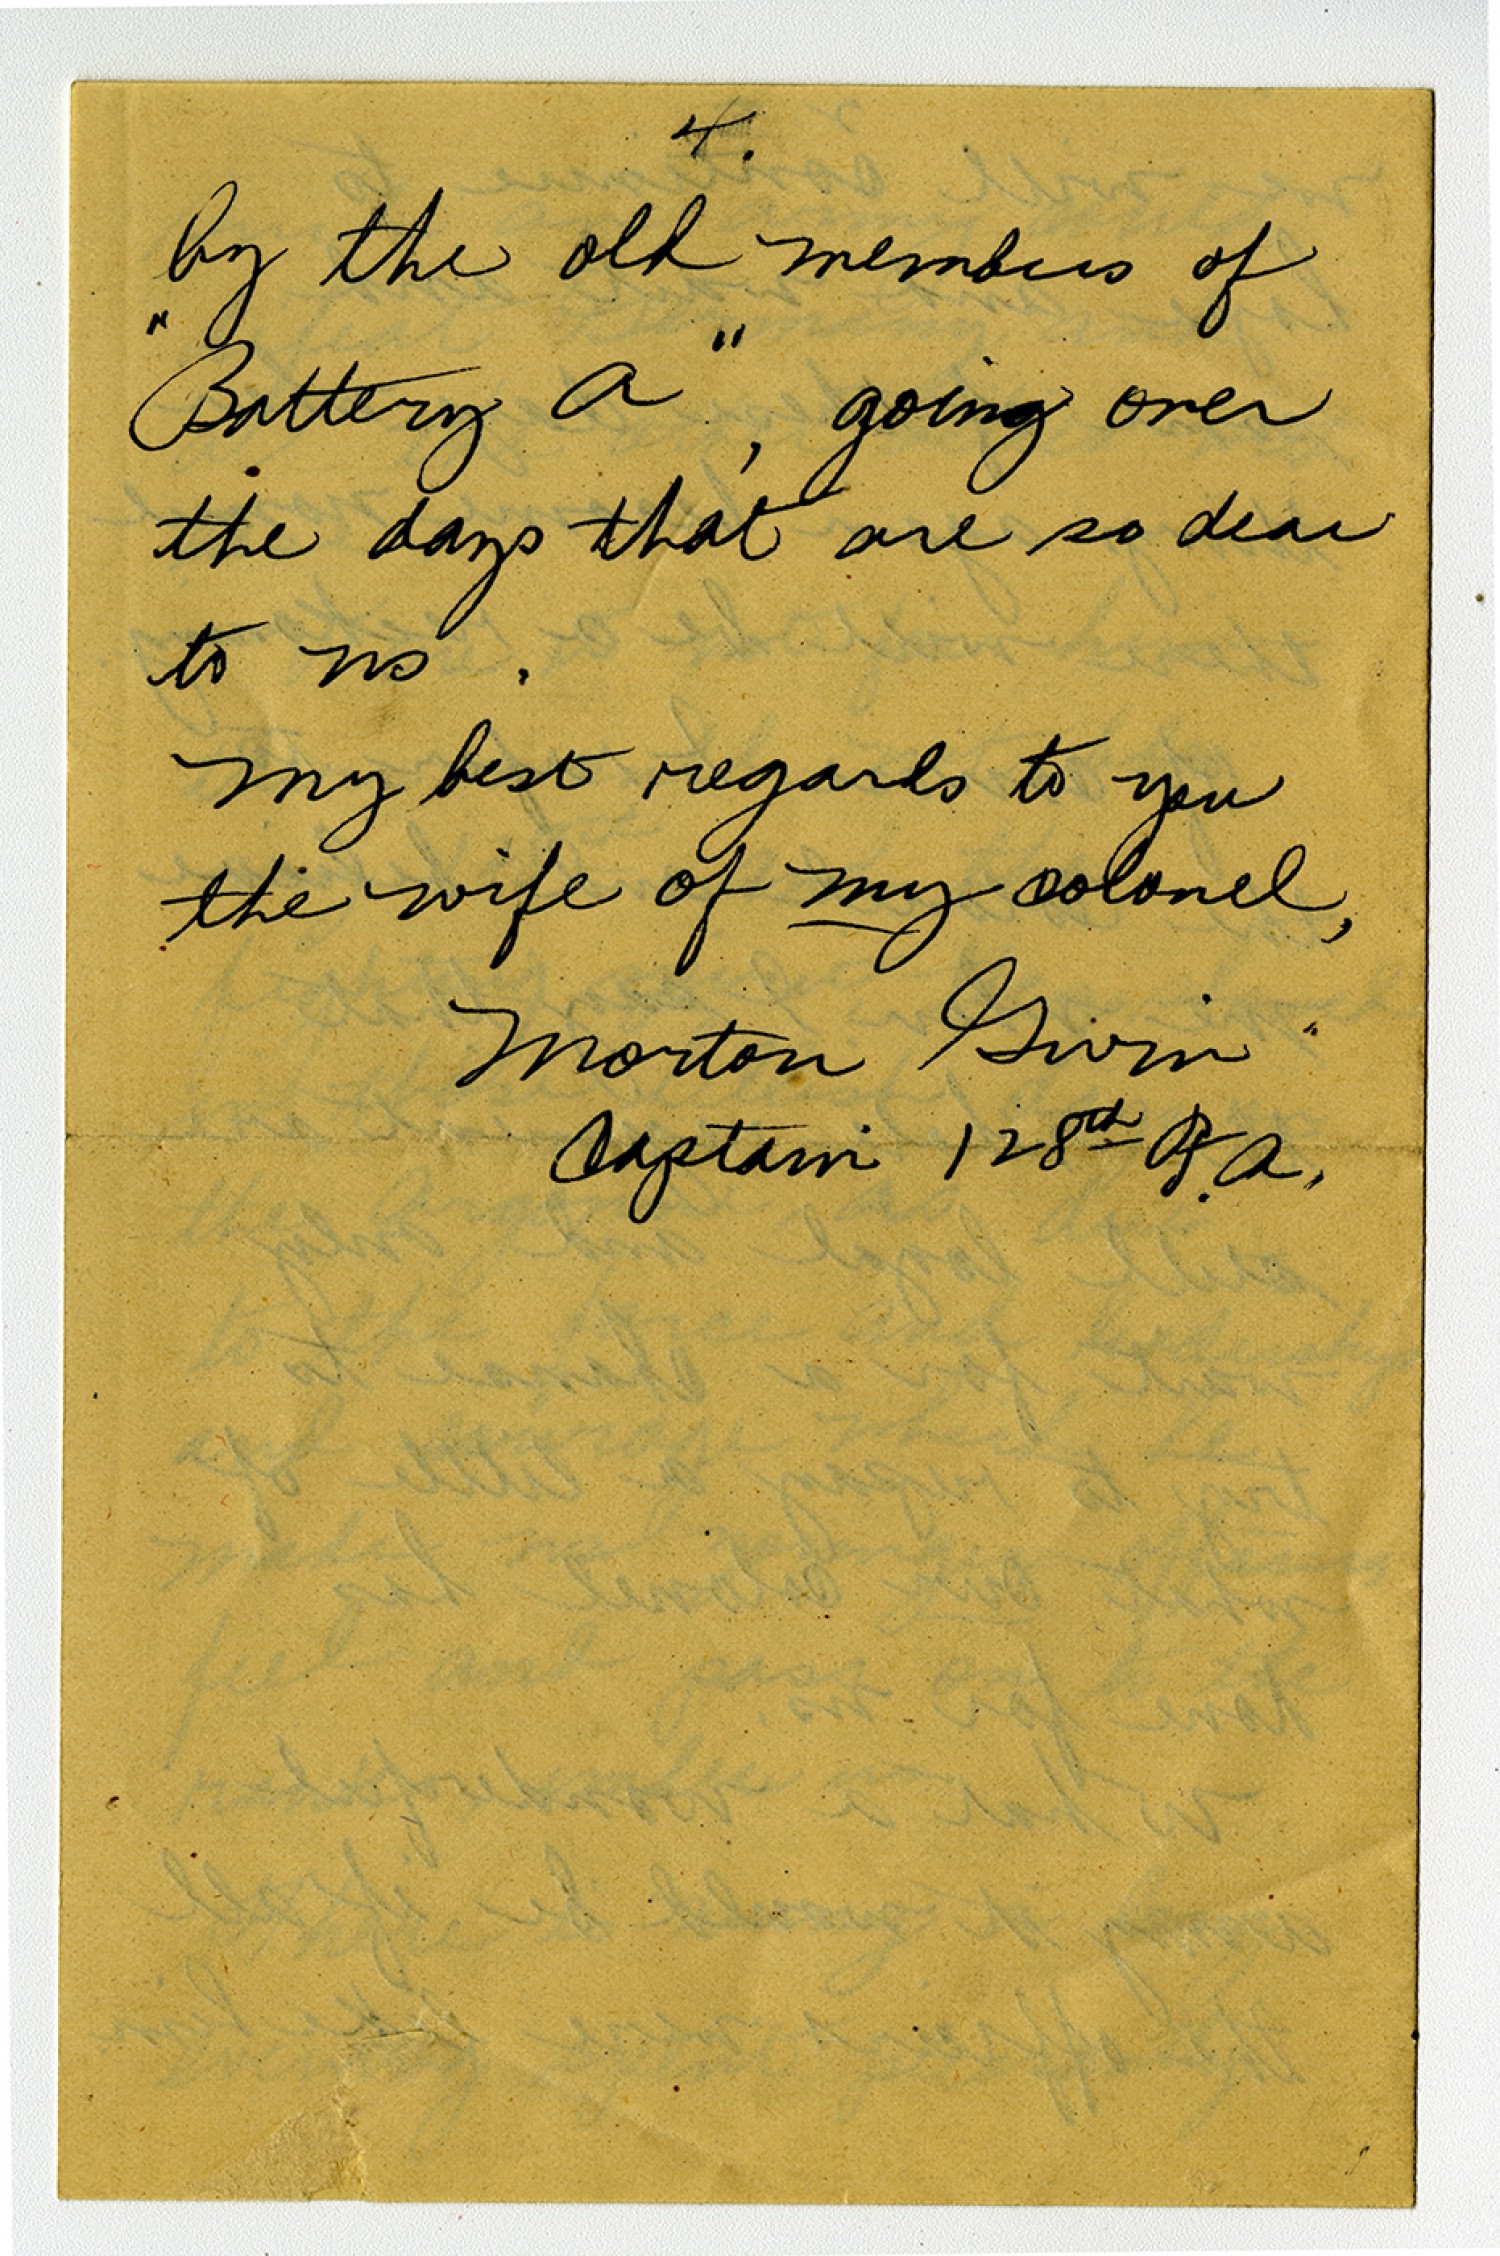 4.
by the old members of
"Battery A", going over
the days that are so dear
to us.
My best regards to you
the wife of my colonel,
Morton Givin
Captain 128th F.A.